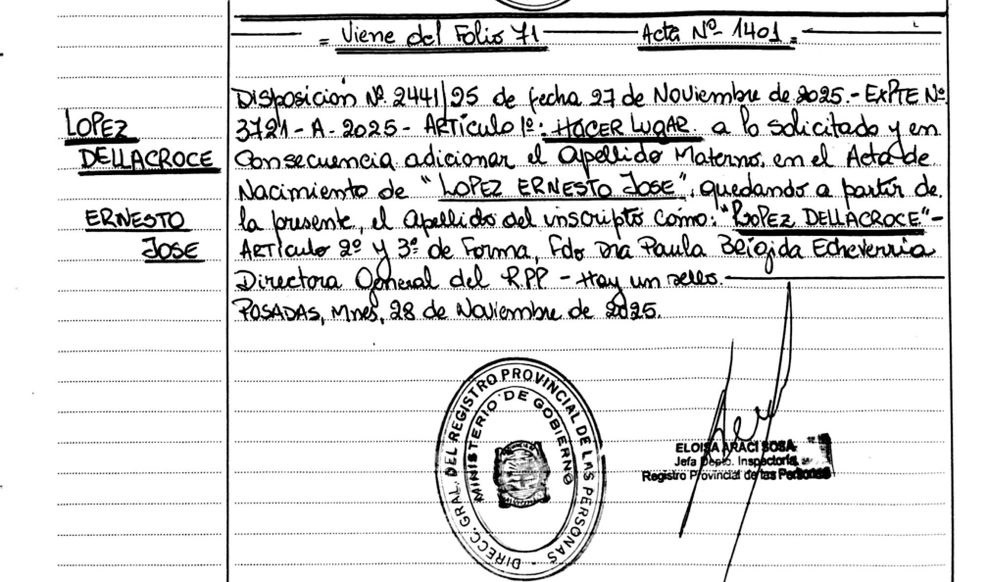 = Viene del Folio 71 — Acta Nº 1401 =
LOPEZ
DELLACROCE
ERNESTO
JOSE
Disposición Nº 2441/25 de fecha 27 de Noviembre de 2025.- EXPTE Nº
3721-A-2025- ARTÍCULO 1º: HACER LUGAR a lo solicitado y en
Consecuencia adicionar el Apellido Materno, en el Acta de
Nacimiento de "LOPEZ ERNESTO JOSE", quedando a partir de
la presente, el Apellido del inscripto como: "LOPEZ DELLACROCE"-
ARTÍCULO 2º y 3º de Forma, Fdo Dra Paula Brigida Echeverria
Directora General del R.P.P - Hay un sello.
POSADAS, Mnes, 28 de Noviembre de 2025.
DIRECC. GRAL. DEL REGISTRO PROVINCIAL DE LAS PERSONAS -
MINISTERIO DE GOBIERNO
ELOISA ARACI SOSA
Jefa Depto. Inspectoría
Registro Provincial de las Personas